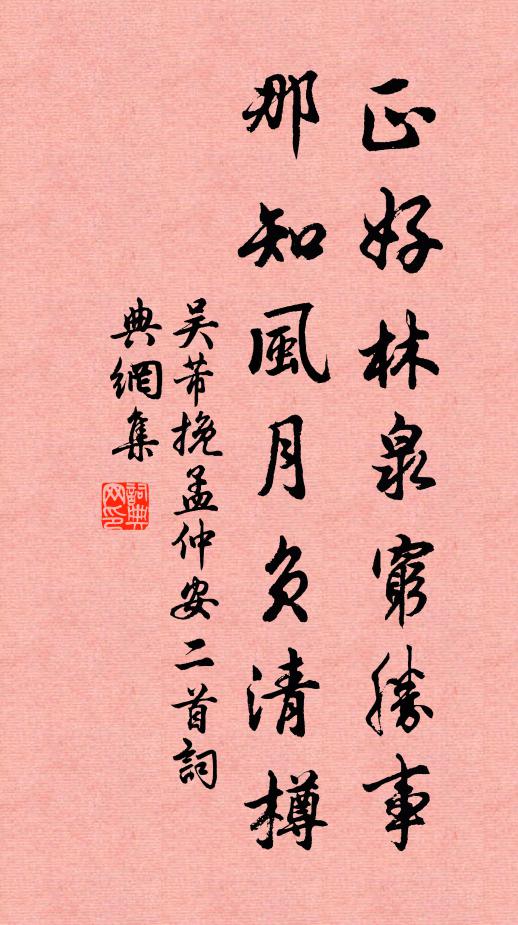 正好林泉窮勝事
那知風月負清樽
吴芾挽孟仲安二首詞
典網集
詞典网印